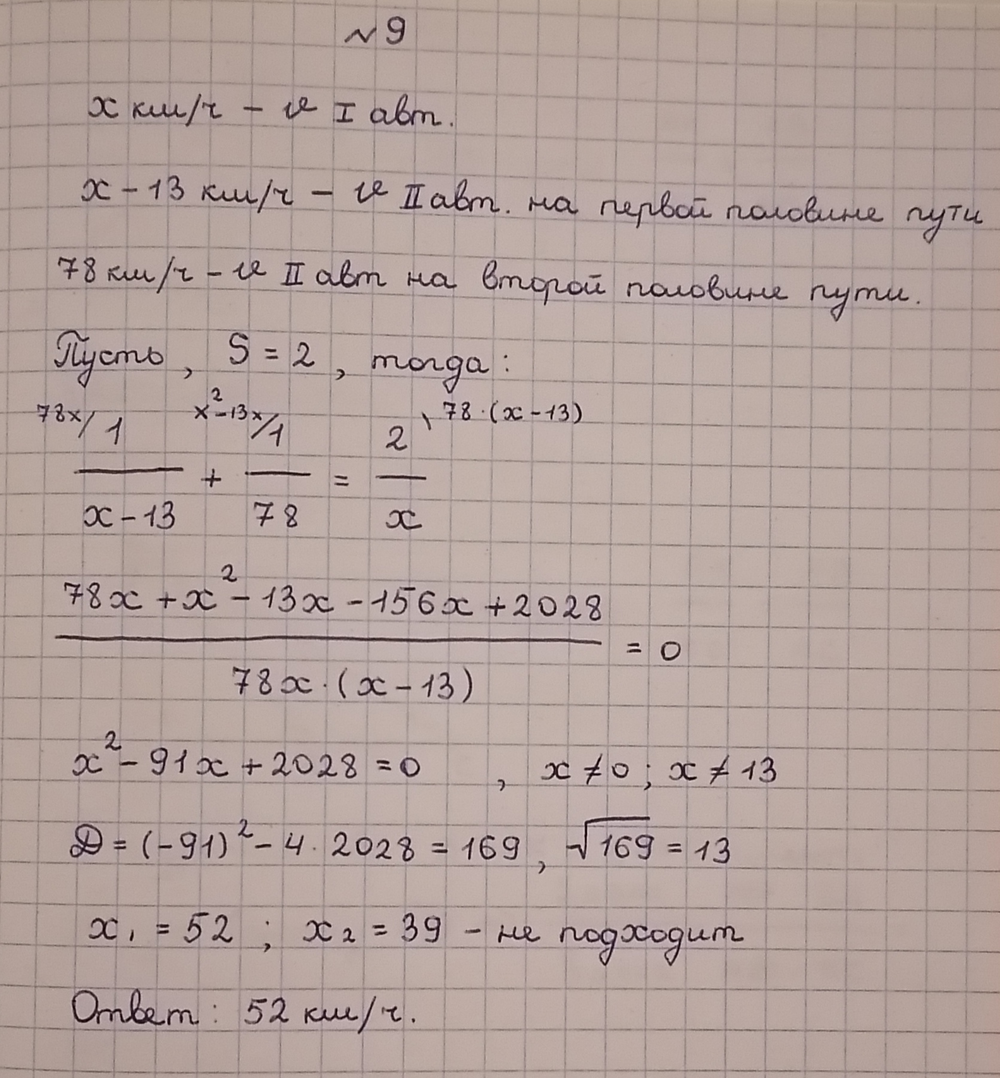 №9
x км/ч – v I авт.
x – 13 км/ч – v II авт. на первой половине пути
78 км/ч – v II авт на второй половине пути.
Пусть, S = 2, тогда:
78x/ 1 / (x – 13) + x² – 13x/ 1 / 78 = 2 \ 78·(x – 13) / x
(78x + x² – 13x – 156x + 2028) / (78x·(x – 13)) = 0
x² – 91x + 2028 = 0 , x ≠ 0; x ≠ 13
D = (–91)² – 4·2028 = 169, √169 = 13
x₁ = 52 ; x₂ = 39 – не подходит
Ответ: 52 км/ч.